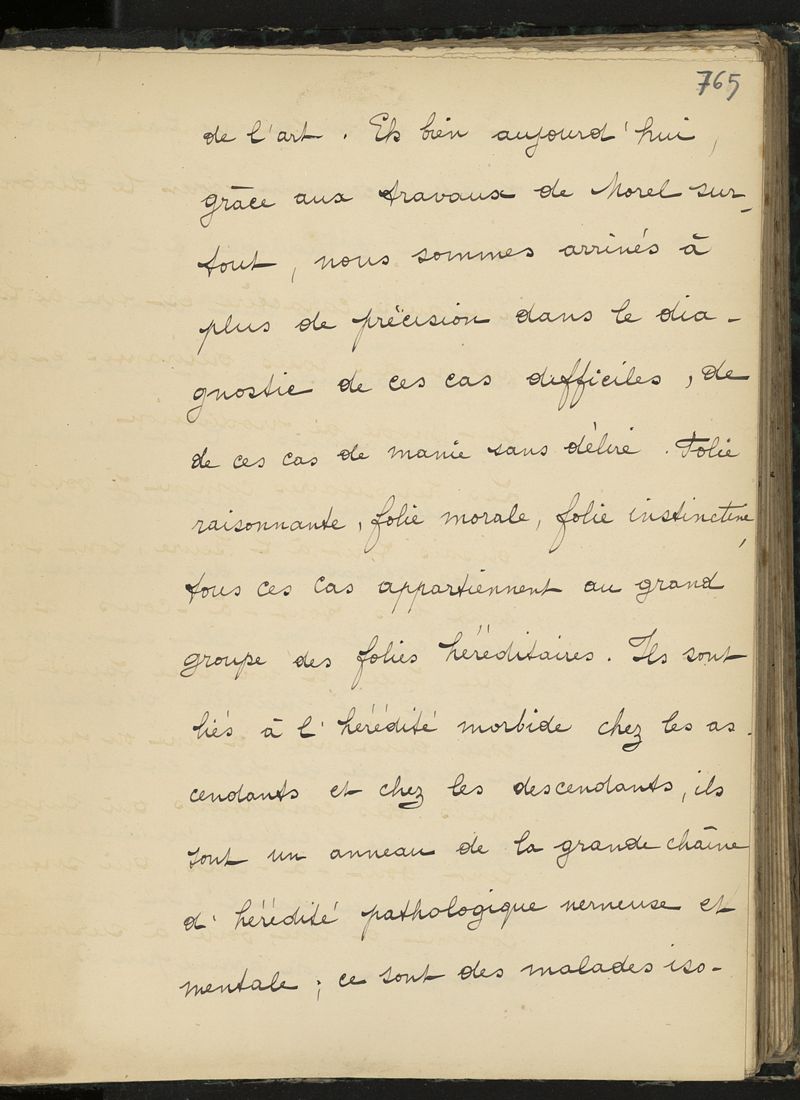 765
de l'art. Eh bien aujourd'hui,
grâce aux travaux de Morel sur-
tout, nous sommes arrivés à
plus de précision dans le dia-
gnostic de ces cas difficiles, de
de ces cas de manie sans délire. Folie
raisonnante, folie morale, folie instinctive,
tous ces cas appartiennent au grand
groupe des folies héréditaires. Ils sont
liés à l'hérédité morbide chez les as-
cendants et chez les descendants, ils
sont un anneau de la grande chaîne
d'hérédité pathologique nerveuse et
mentale; ce sont des malades iso-